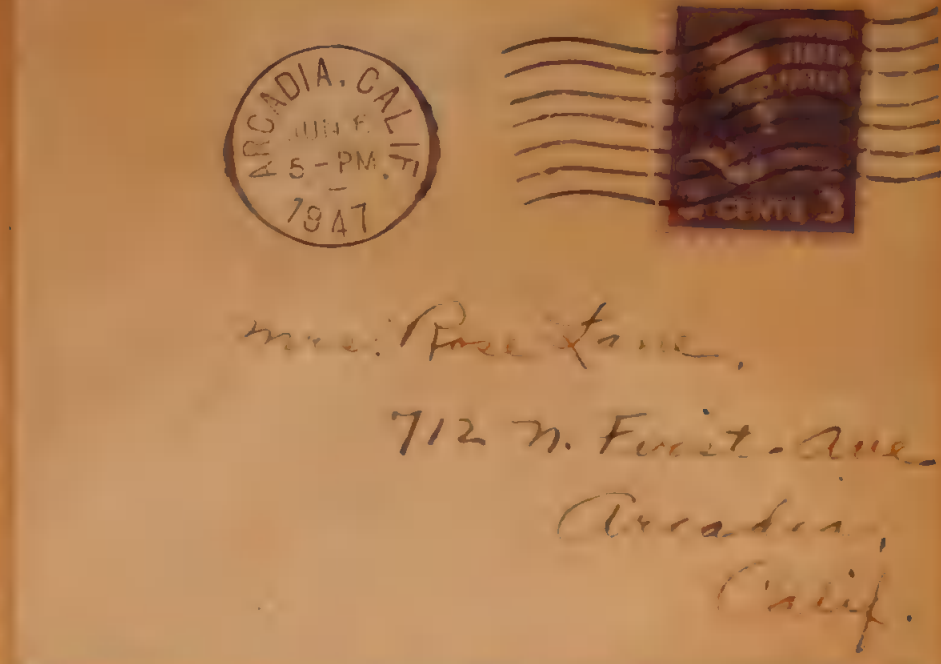 ARCADIA, CALIF.
JUN 6
5-PM
1947
CENTS 3
Mrs. Rose Lane,
712 N. First. Ave.
Arcadia,
Calif.